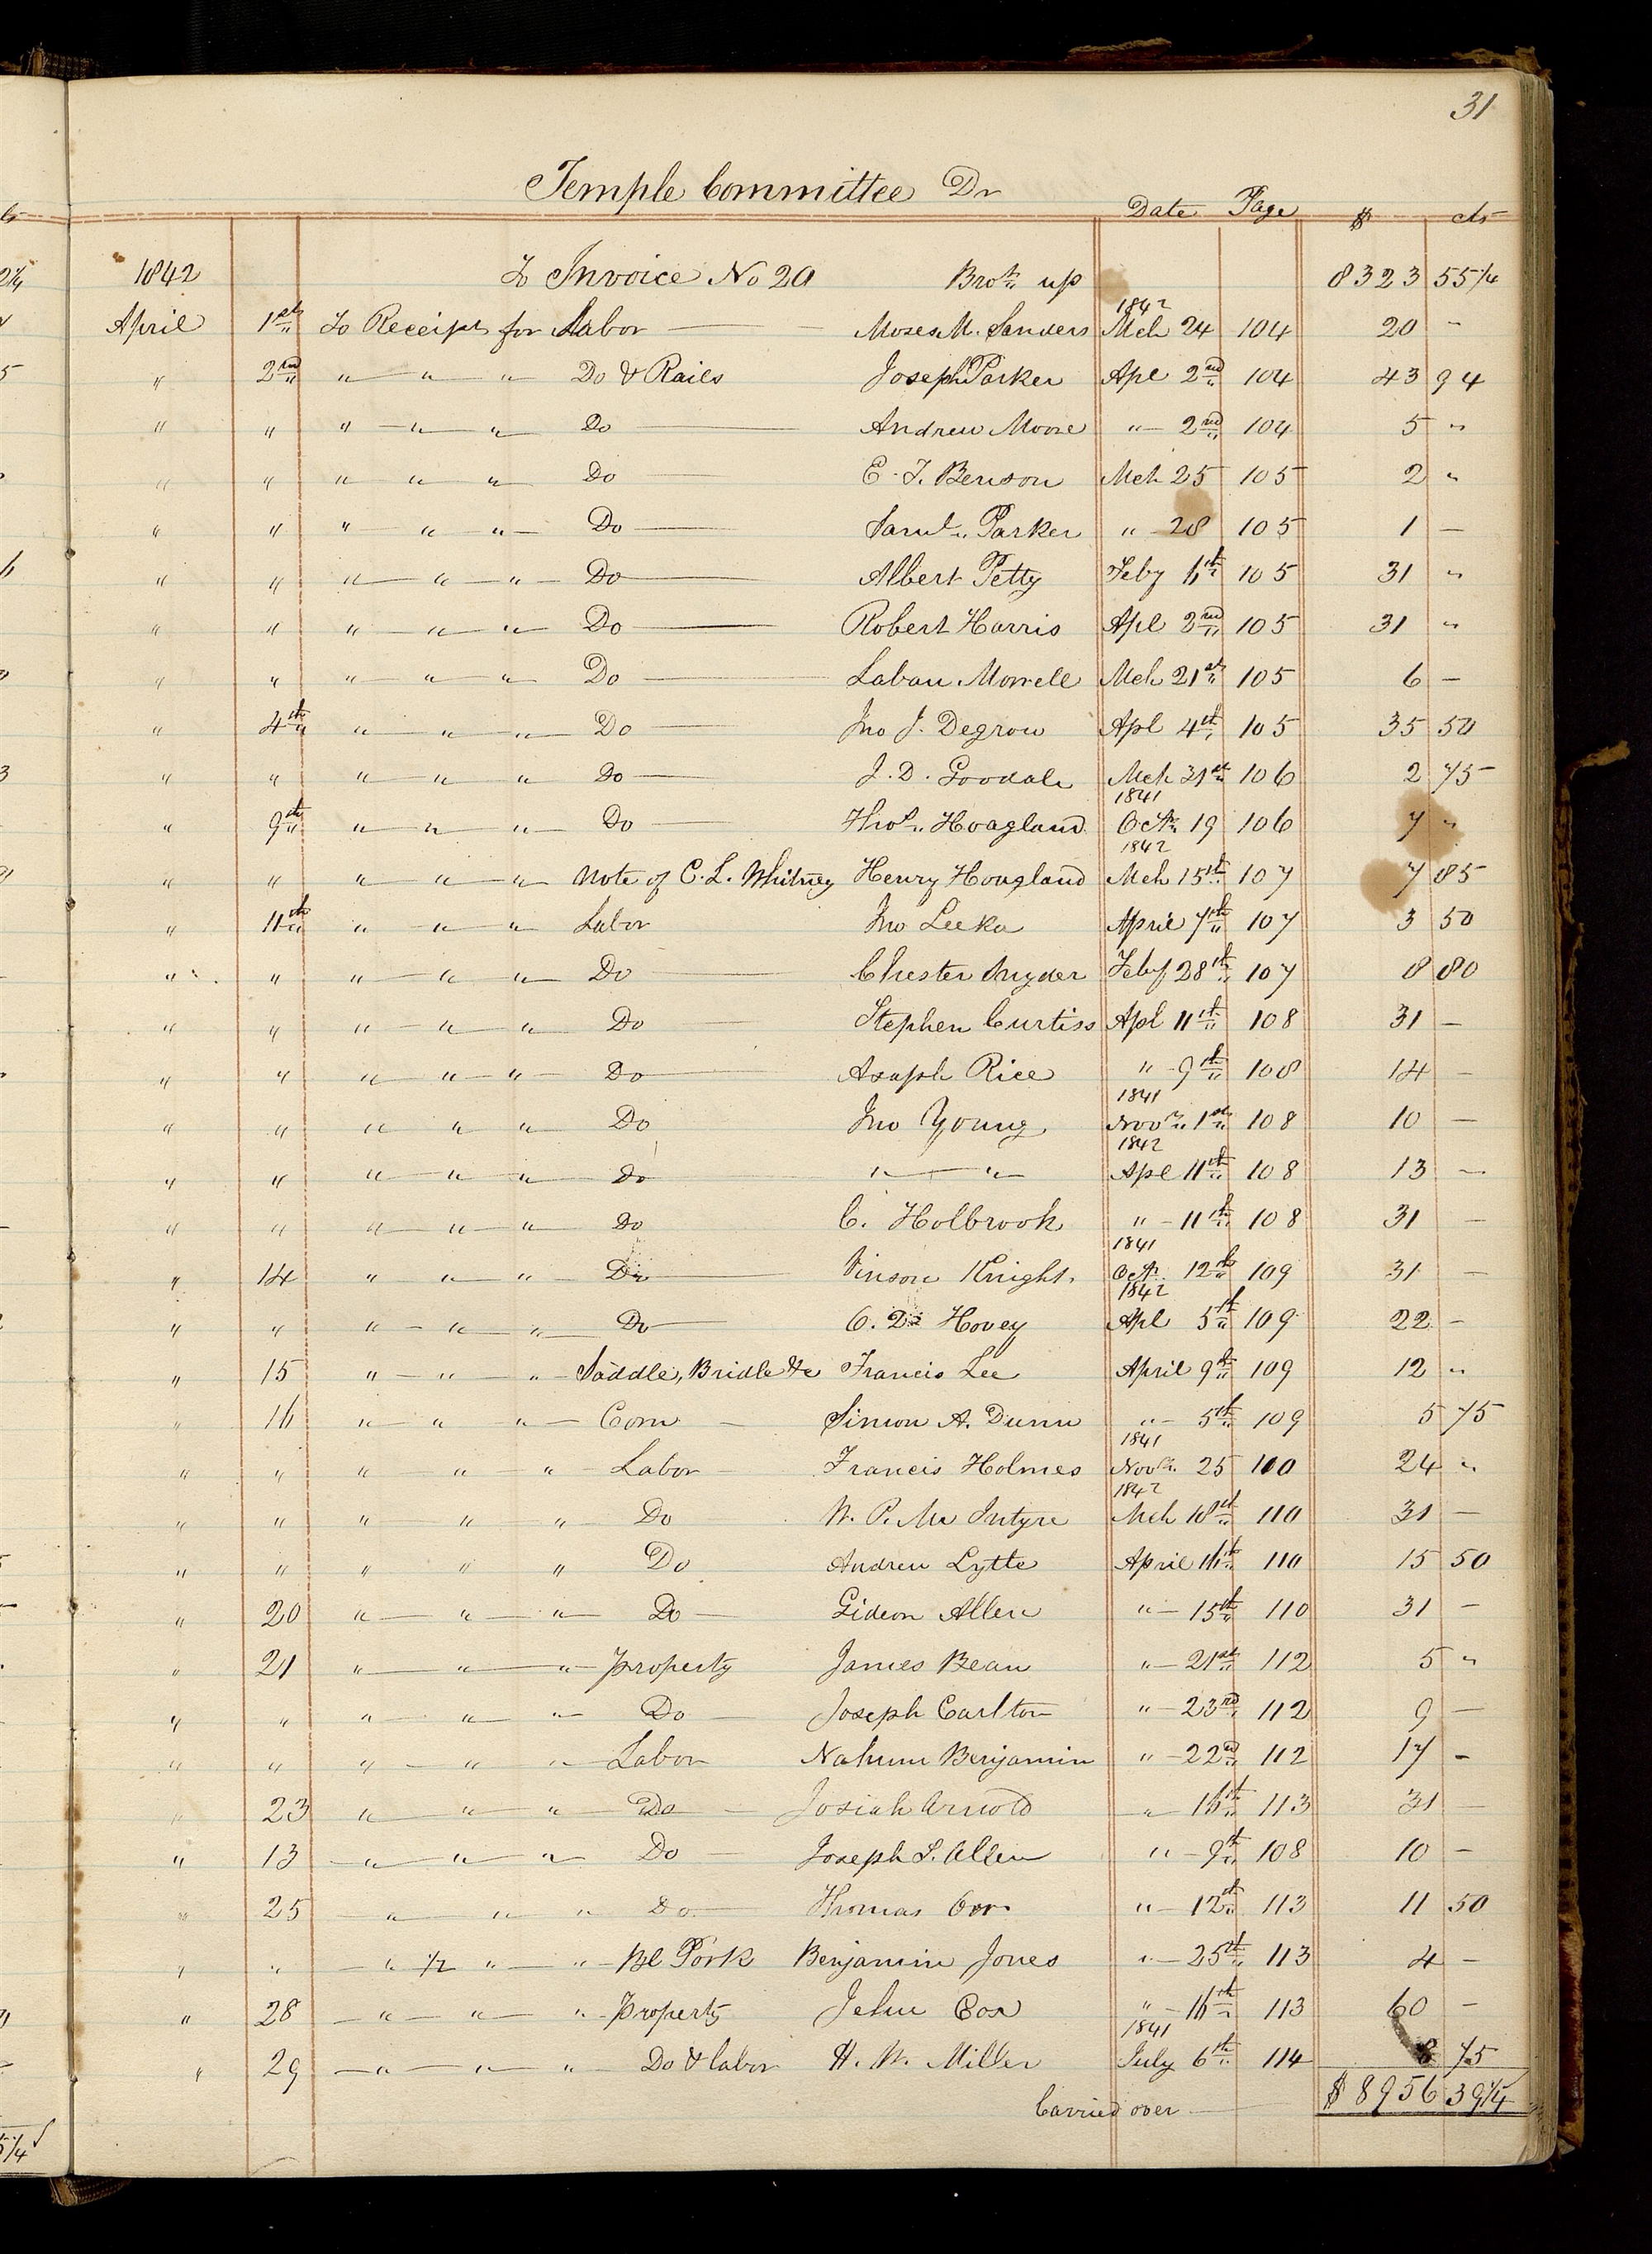 31
Temple Committee Dr
Date Page $ cts
1842 To Invoice No 20 Brot up 8323 55 1/4
1842
April 1st To Receipt for Labor — Moses M. Sanders Mch 24 104 20 "
" 2nd " " " Do & Rails Joseph Parker Apl 2nd 104 43 94
" " " " " Do — Andrew Moore " 2nd 104 5 "
" " " " " Do — E. T. Benson Mch 25 105 2 "
" " " " " Do — Saml. Parker " 28 105 1 —
" " " " " Do — Albert Petty Feby 16th 105 31 "
" " " " " Do — Robert Harris Apl 2nd 105 31 "
" " " " " Do — Laban Morrell Mch 21st 105 6 —
" 4th " " " Do — Jno J. Degrow Apl 4th 105 35 50
" " " " " Do — J. D. Goodale Mch 31st 106 2 75
1841
" 9th " " " Do — Thos. Hoagland Octr 19 106 7 "
1842
" " " " " Note of C. L. Whitney Henry Hoagland Mch 15th 107 7 85
" 11th " " " Labor Jno Leeka April 7th 107 3 50
" " " " " Do — Chester Snyder Feby 28th 107 8 80
" " " " " Do — Stephen Curtiss Apl 11th 108 31 —
" " " " " Do — Asaph Rice " 9th 108 14 —
1841
" " " " " Do Jno Young Novr. 1st 108 10 —
1842
" " " " " Do " " Apl 11th 108 13 —
" " " " " Do C. Holbrook " 11th 108 31 —
1841
" 14 " " " Do — Vinson Knight Oct. 12th 109 31 —
1842
" " " " " Do — O. D. Hovey Apl 5th 109 22 —
" 15 " " " Saddle, Bridle &c Francis Lee April 9th 109 12 "
" 16 " " " Corn — Simon A. Dunn " 5th 109 5 75
1841
" " " " " Labor Francis Holmes Novr. 25 110 24 "
1842
" " " " " Do W. P. Mc Intyre Mch 18th 110 31 —
" " " " " Do Andrew Lytle April 16th 110 15 50
" 20 " " " Do — Gideon Allen " 15th 110 31 —
" 21 " " " Property James Bean " 21st 112 5 "
" " " " " Do — Joseph Carlton " 23rd 112 9 —
" " " " " Labor Nahum Benjamin " 22nd 112 17 —
" 23 " " " Do — Josiah Arnold " 16th 113 31 —
" 13 " " " Do — Joseph S. Allen " 9th 108 10 —
" 25 " " " Do Thomas Orr " 12th 113 11 50
" " " 1/2 " " Bl Pork Benjamin Jones " 25th 113 4 —
" 28 " " " Property Jehu Cox " 16th 113 60 —
1841
" 29 " " " Do & labor H. W. Miller July 6th 114 8 75
Carried over — $ 8956 39 1/4